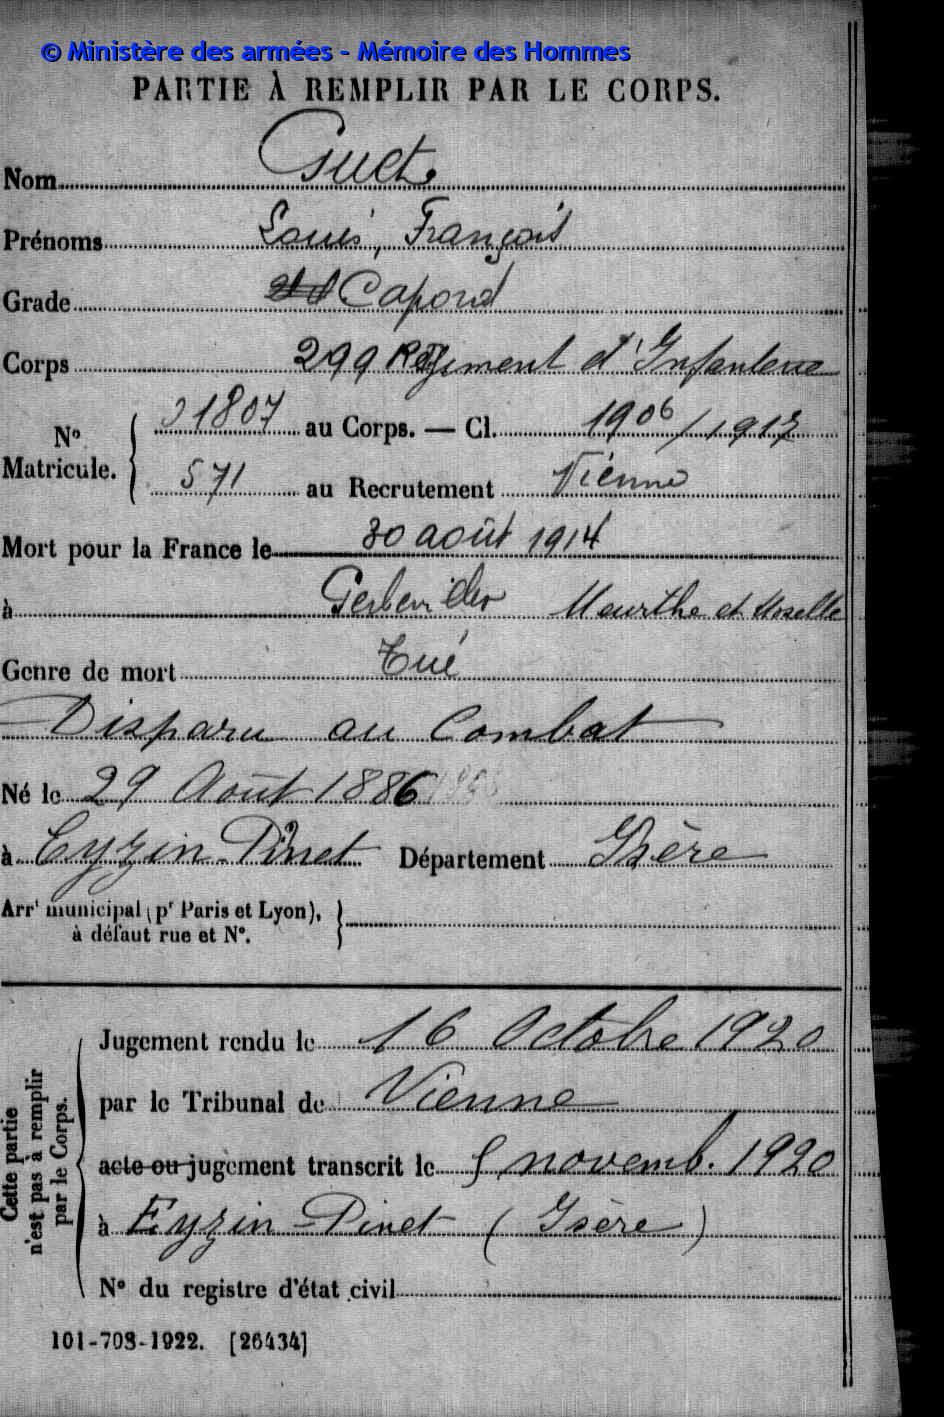 © Ministère des armées - Mémoire des Hommes
PARTIE À REMPLIR PAR LE CORPS.
Nom Guet
Prénoms Louis, François
Grade Caporal
Corps 299 Régiment d'Infanterie
N° Matricule. 01807 au Corps. — Cl. 1906/1917
571 au Recrutement Vienne
Mort pour la France le 30 août 1914
à Gerbeviller Meurthe et Moselle
Genre de mort Tué
Disparu au Combat
Né le 29 Août 1886
à Eyzin-Pinet Département Isère
Arrt municipal (pr Paris et Lyon),
à défaut rue et N°.
Cette partie
n'est pas à remplir
par le Corps.
Jugement rendu le 16 Octobre 1920
par le Tribunal de Vienne
acte ou jugement transcrit le 5 novemb. 1920
à Eyzin-Pinet (Isère)
N° du registre d'état civil
101-708-1922. [26434]